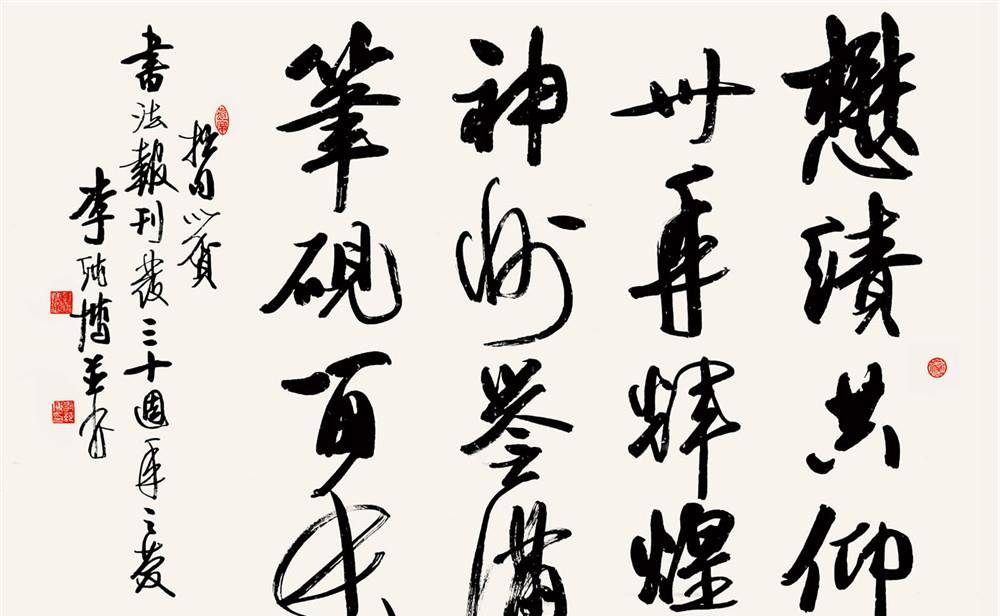 懋績共仰
卅年輝煌
神州譽滿
筆硯百
句以賀
書法報刊發三十週年之慶
李純博並書